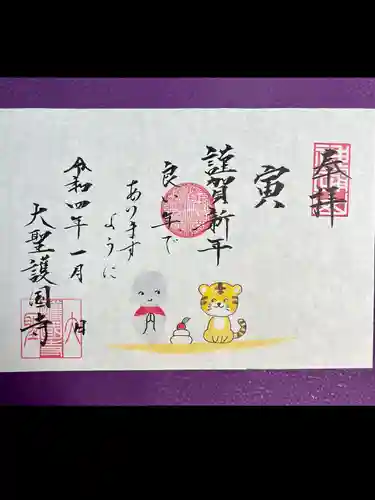 奉拝
寅
謹賀新年
良い年で
あります
ように
令和四年一月 日
大聖護国寺